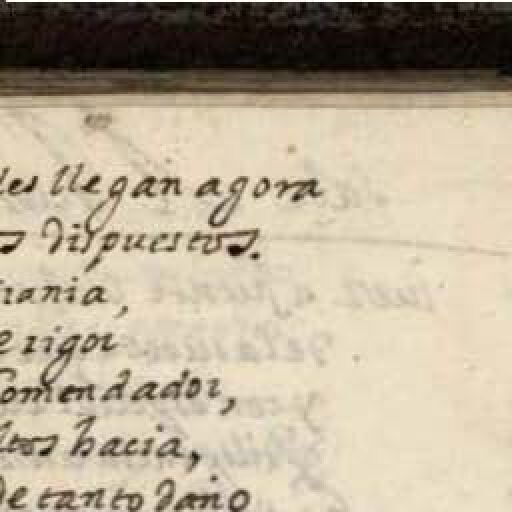 les llegan agora
s dispuestos.
rania,
e rigor
Comendador,
ltos hacia,
de tanto daño